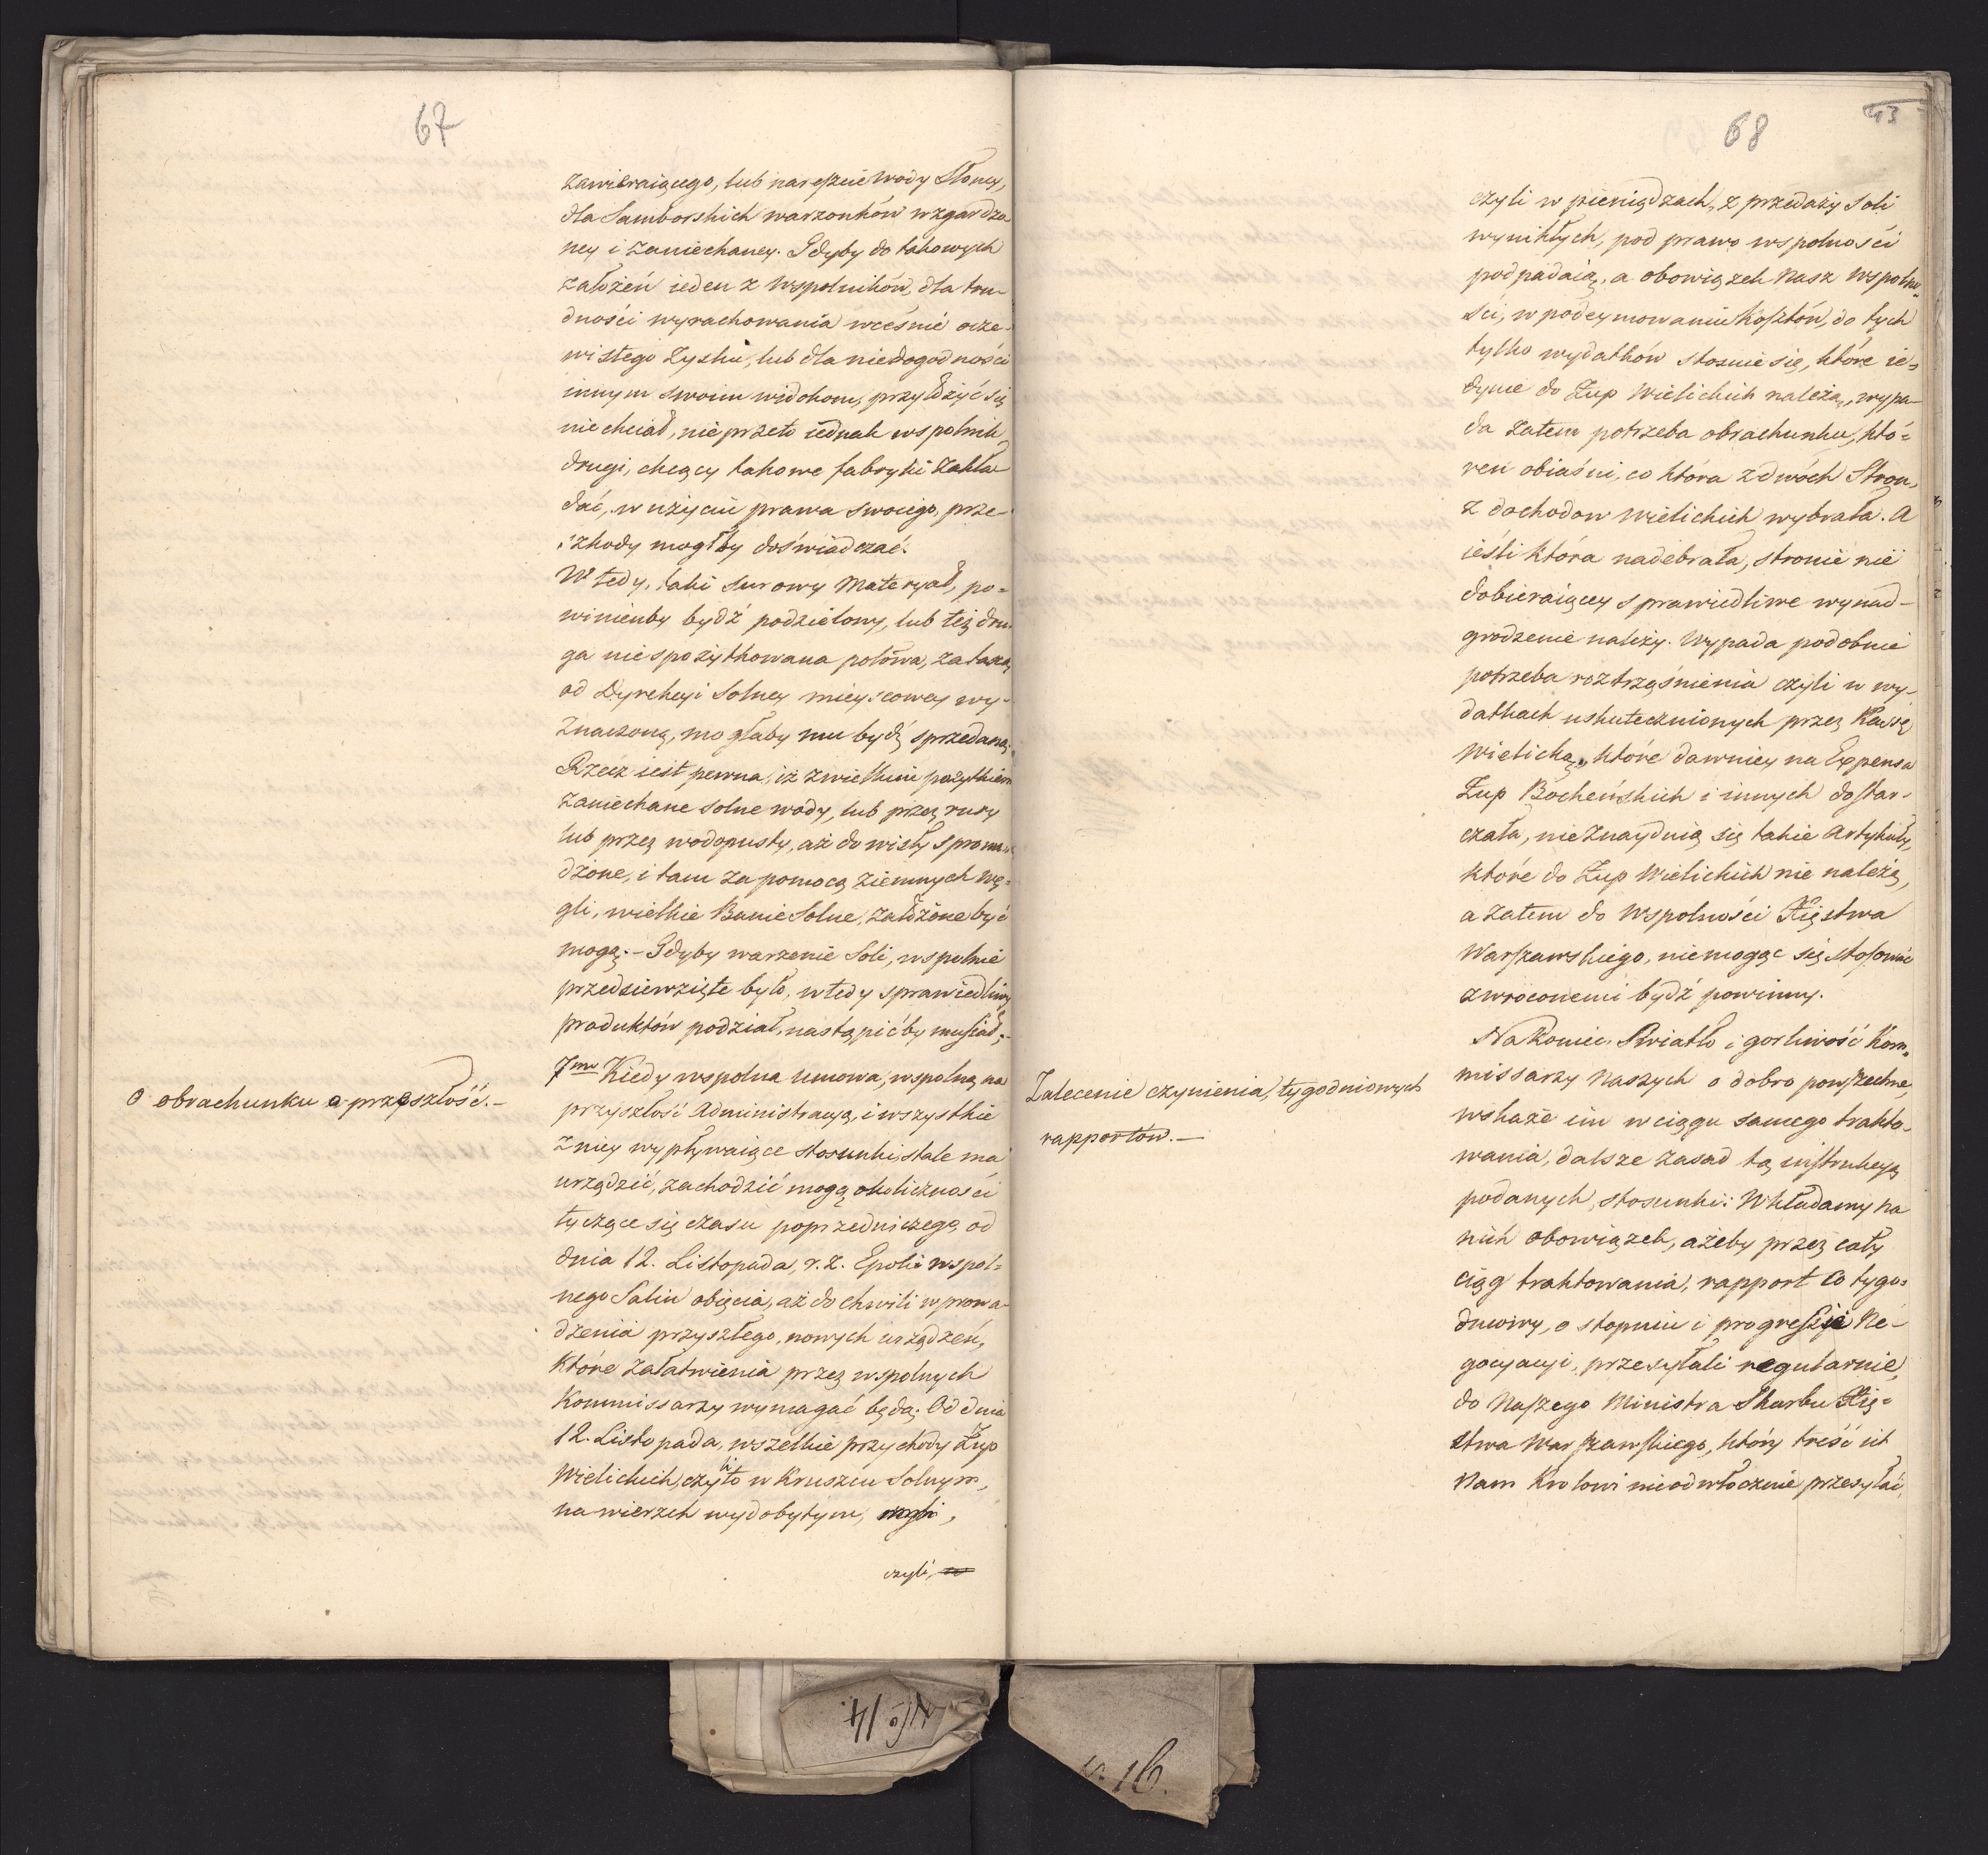 67
zawieraiącego, lub nareszcie wody Słoney,
dla Samborskich warzonków wzgardzo
ney i zaniechaney. Gdyby do takowych
założeń ieden z wspolników, dla tru-
dności wyrachowania wcześnie ocze-
wistego Zysku, lub dla niedogodności
innym swoim widokom, przyłożyć się
niechciał, nieprzeto iednak wspolnik
drugi, chcący takowe fabryki zakła-
dać, w użyciu prawa swoiego, prze-
szkody mogłby doświadczać.
Wtedy, taki surowy Materyał, po=
winienby bydź podzielony, lub też dru-
ga niespożytkowana połowa, za taxą
od Dyrekcyi Solney mieyscowey wy-
znaczoną, mogłaby mu bydź sprzedaną.
Rzecz iest pewna, iż z wielkim pożytkiem
zaniechane solne wody, lub przez rury
lub przez wodopusty, aż do wisły sprowa-
dzone, i tam za pomocą ziemnych wę=
gli, wielkie Banie Solne, założone być
mogą.- Gdyby warzenie Soli, wspolnie
przedsiewzięte było, wtedy sprawiedliwy
produktów podział, nastąpićby musiał;-
O obrachunku o przeszłość.-
7mo Kiedy wspolna umowa, wspolną na
przyszłość Administracyą, i wszystkie
z niey wypływaiące stosunki, stale ma
urządzić, zachodzić mogą okoliczności
tyczące się czasu poprzedniczego, od
dnia 12. Listopada, r. z. Epoki wspol=
nego Salin obięcia, aż do chwili wprowa-
dzenia przyszłego, nowych urządzeń,
które załatwienia przez wspolnych
Kommissarzy wymagać będą. Od dnia
12. Listopada, wszelkie przychody Żup
Wielickich, czyli to w Kruszcu Solnym,
na wierzch wydobytym, czyli,
czyli, w
68
43
czyli w pieniądzach, z przedaży Soli
wynikłych, pod prawo wspolności
podpadaią, a obowiązek Nasz wspolno-
ści, w podeymowaniu Kosztów, do tych
tylko wydatków stosuie się, które ie=
dynie do Żup Wielickich należą, wypa-
da zatem potrzeba obrachunku, któ=
ren obiaśni, co która z dwóch Stron,
z dochodow wielickich wybrała. A
ieśli która nadebrała, stronie nie
dobieraiącey sprawiedliwe wynad-
grodzenie należy. Wypada podobnie
potrzeba roztrząśnienia czyli w wy-
datkach uskutecznionych przez Kassę
Wielicką, które dawniey na Expensa
Żup Bocheńskich i innych dostar-
czała, nie znayduią się takie Artykuły,
które do Żup Wielickich nie należą,
a zatem do Wspolności Xięstwa
Warszawskiego, niemogąc się stosować
zwróconemi bydź powinny.
Zalecenie czynienia, tygodniowych
rapportów.-
Nakoniec, Światło i gorliwość Kom-
missarzy Naszych o dobro powszechne,
wskaże im w ciągu samego trakto-
wania, dalsze zasad tą instrukcyą
podanych, stosunki: Wkładamy na
nich obowiązek, ażeby przez cały
ciąg traktowania, rapport co tygo=
dniowy, o stopniu i progressie Ne-
gocyacyi, przesyłali regularnie,
do Naszego Ministra Skarbu Xię=
stwa Warszawskiego, który treść ich
Nam Krolowi nieodwłocznie przesyłać,
No 14.
16.